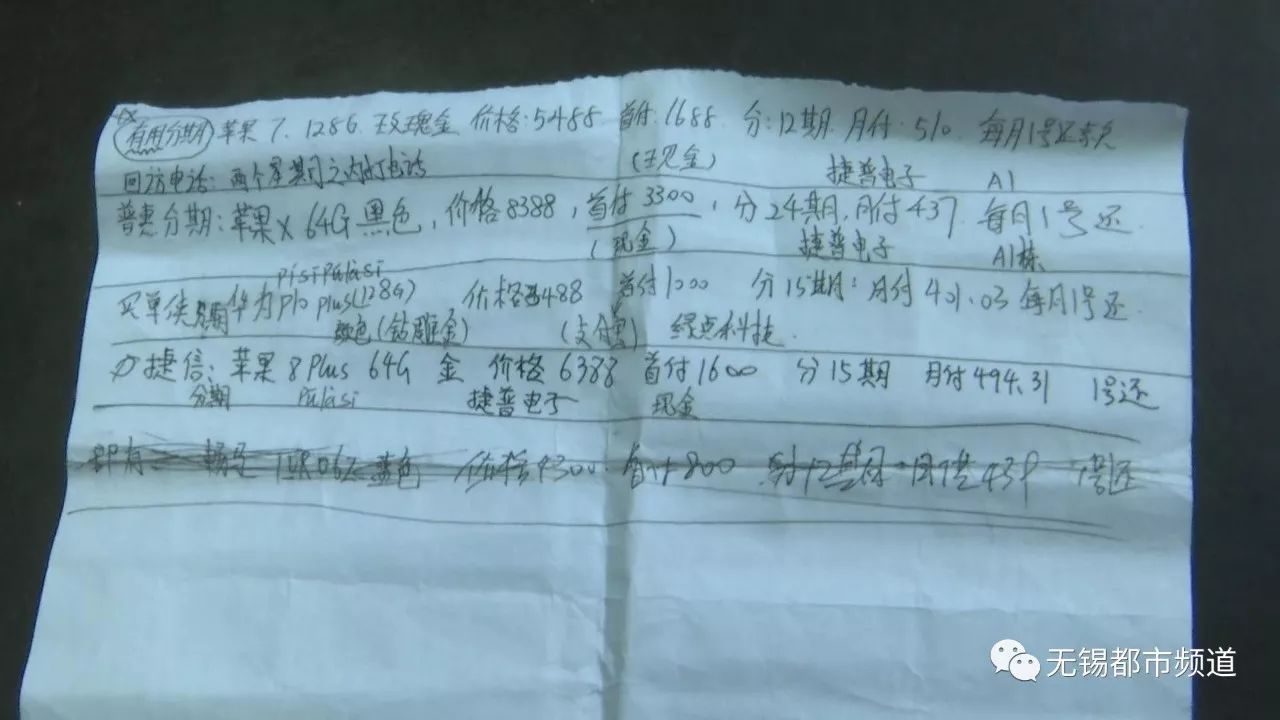 有用分期 苹果7.128G.玫瑰金 价格:5488 首付:1688. 分:12期.月付:510. 每月1号还款
回访电话:两个星期之内打电话 (现金) 捷普电子 A1
普惠分期:苹果X 64G黑色,价格8388,首付3300,分24期,月付437.每月1号还.
(现金) 捷普电子 A1栋
pisipulasi
买单侠分期 华为P10 plus(128G) 价格488 首付1000 分15期:月付401.03 每月1号还.
颜色(钻雕金) (支付宝) 绿点科技.
捷信:苹果8Plus 64G 金 价格6388 首付1600 分15期 月付494.31 1号还
分期 Pulasi 捷普电子 现金
蓝色 价格4300.首付800 12期 月供439 1号还
无锡都市频道